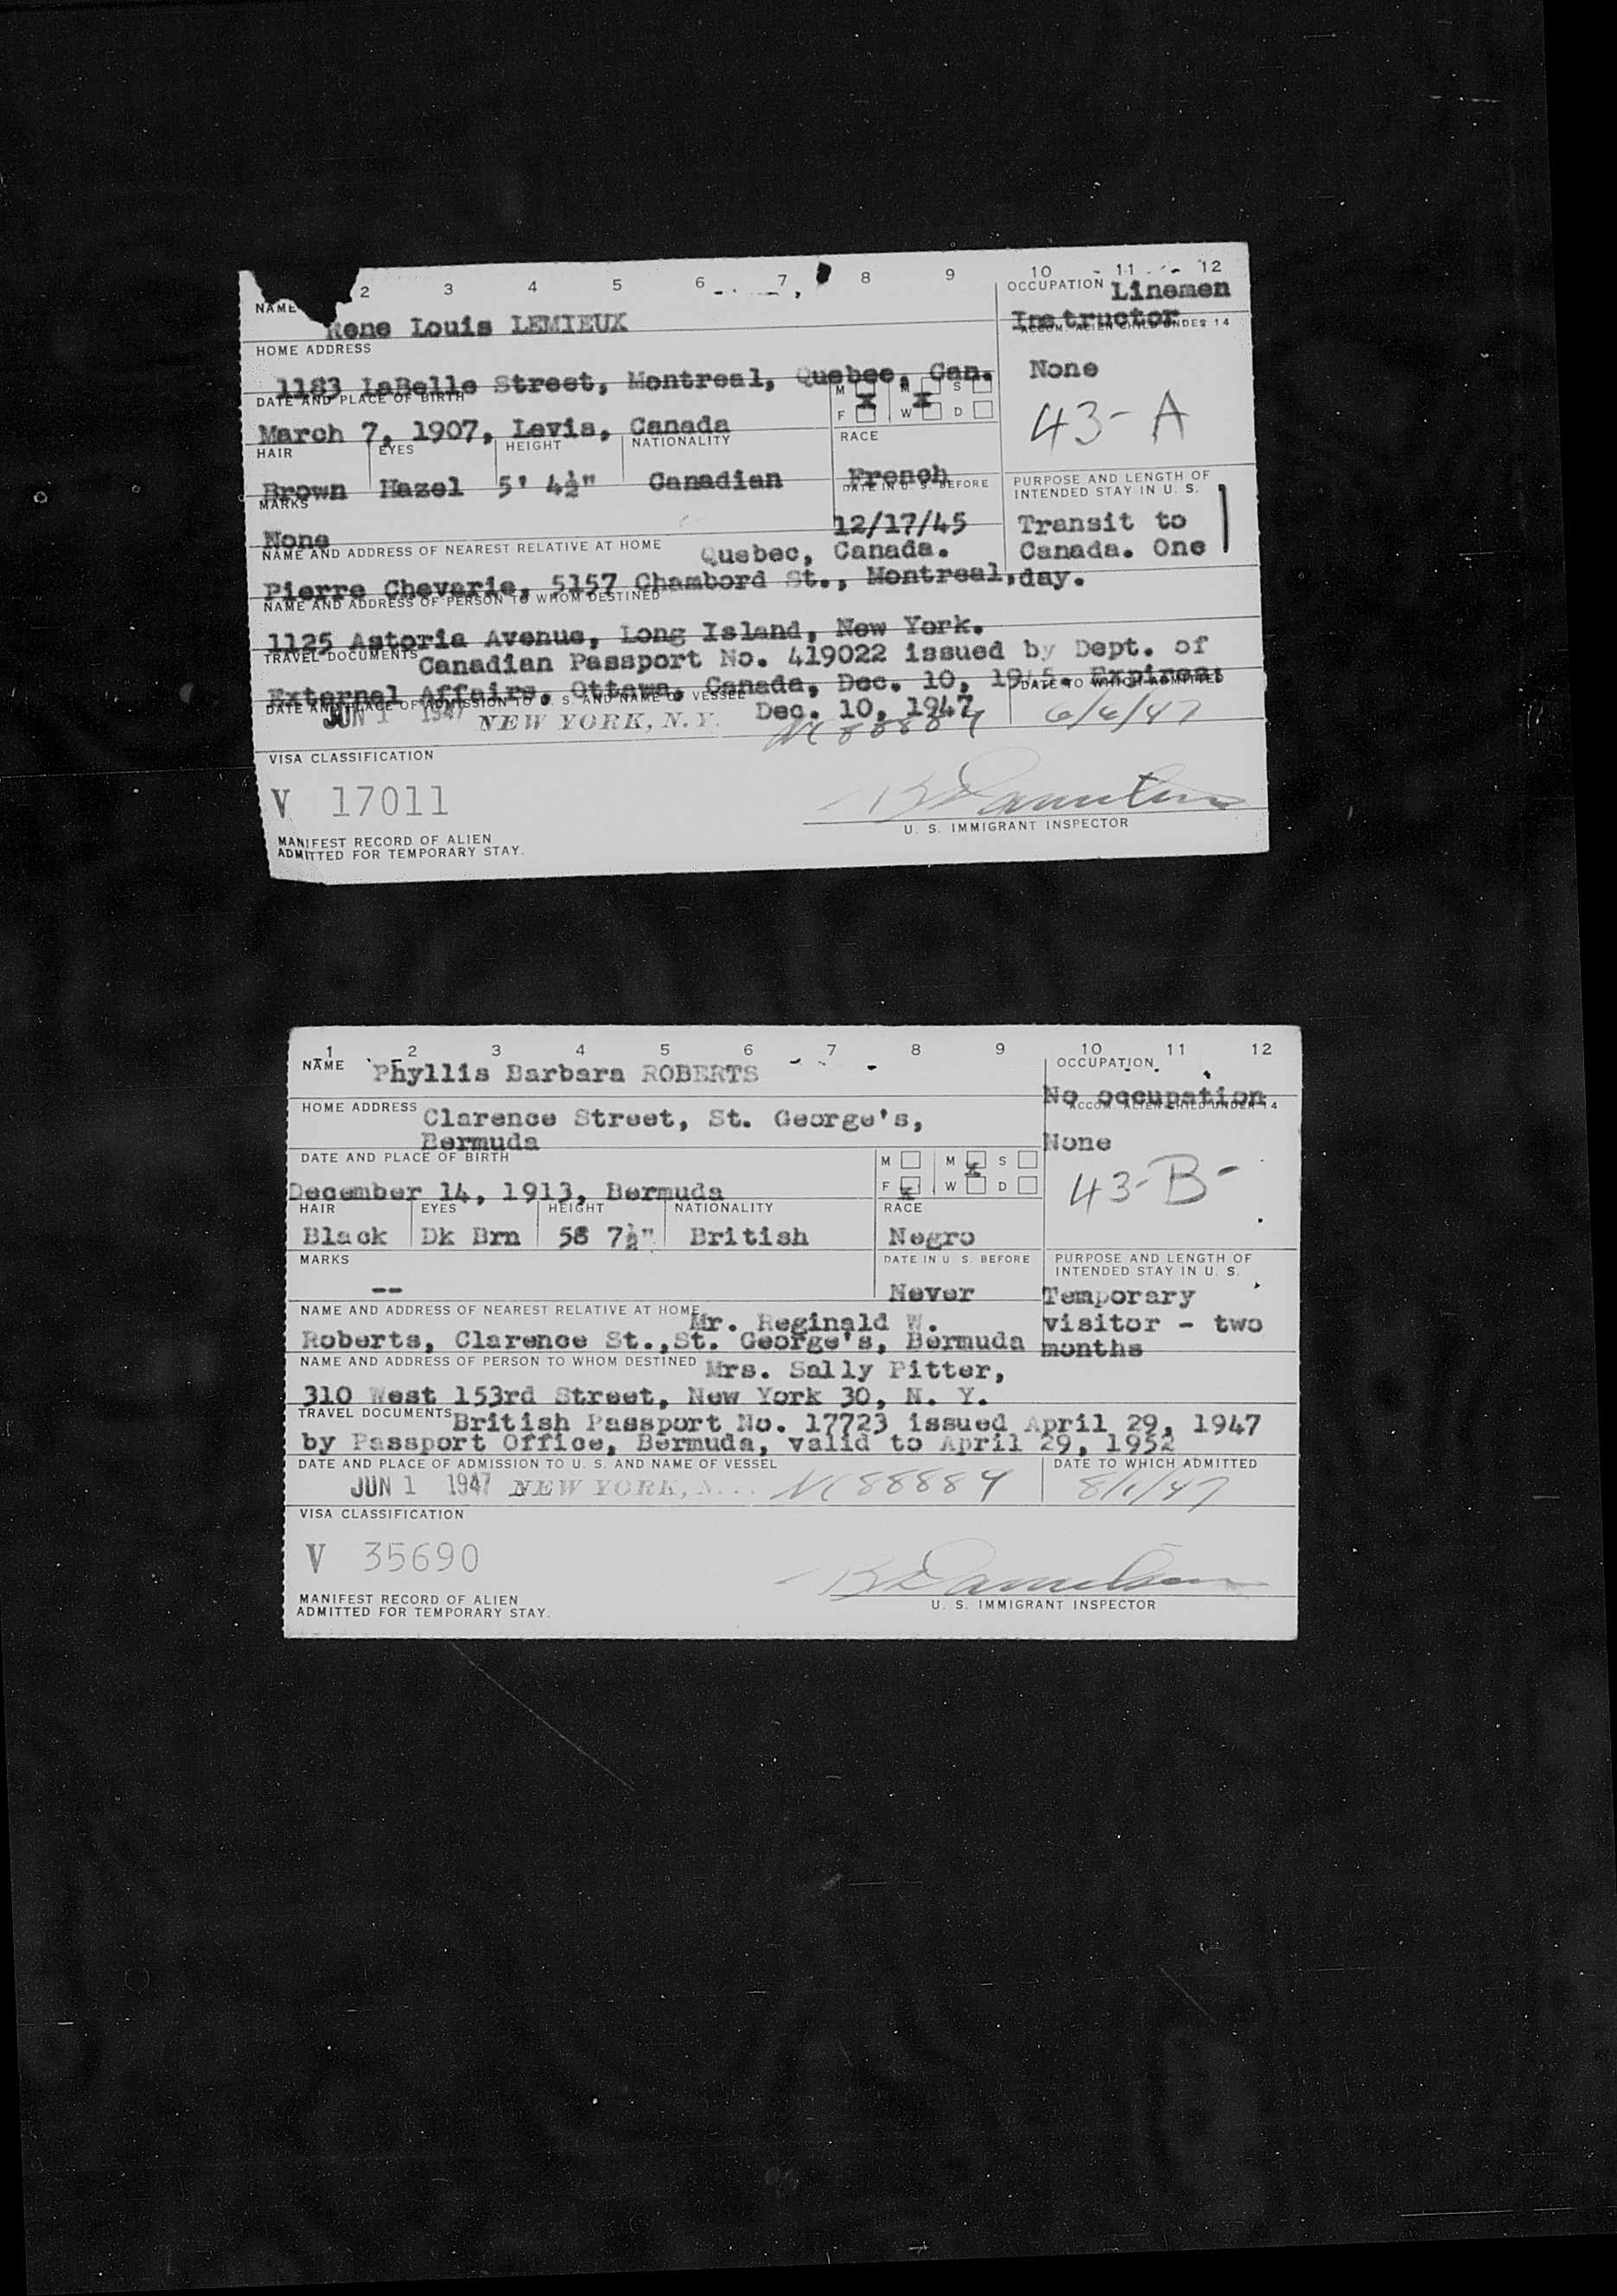 2 3 4 5 6 7 8 9 10 11 12
NAME Rene Louis LEMIEUX
OCCUPATION Linemen
Instructor
ACCOM. ALIEN CHILD UNDER 14
HOME ADDRESS
1183 LaBelle Street, Montreal, Quebec, Can.
None
DATE AND PLACE OF BIRTH
M M S
F W D
X X
March 7, 1907, Levis, Canada
43-A
HAIR EYES HEIGHT NATIONALITY RACE
Brown Hazel 5' 4½" Canadian French
PURPOSE AND LENGTH OF
INTENDED STAY IN U. S.
MARKS DATE IN U. S. BEFORE
None 12/17/45
Transit to
Canada. One
day.
NAME AND ADDRESS OF NEAREST RELATIVE AT HOME Quebec, Canada.
Pierre Cheverie, 5157 Chambord St., Montreal,
NAME AND ADDRESS OF PERSON TO WHOM DESTINED
1125 Astoria Avenue, Long Island, New York.
TRAVEL DOCUMENTS Canadian Passport No. 419022 issued by Dept. of
External Affairs, Ottawa, Canada, Dec. 10, 1945. Expires:
DATE AND PLACE OF ADMISSION TO U. S. AND NAME OF VESSEL DATE TO WHICH ADMITTED
JUN 1 1947 NEW YORK, N.Y. Dec. 10, 1947 6/6/47
NC 88884
VISA CLASSIFICATION
V 17011
U. S. IMMIGRANT INSPECTOR
MANIFEST RECORD OF ALIEN
ADMITTED FOR TEMPORARY STAY.
1 2 3 4 5 6 7 8 9 10 11 12
NAME Phyllis Barbara ROBERTS
OCCUPATION
No occupation
ACCOM. ALIEN CHILD UNDER 14
HOME ADDRESS Clarence Street, St. George's,
Bermuda
None
DATE AND PLACE OF BIRTH
M M S
F W D
X X
December 14, 1913, Bermuda
43-B-
HAIR EYES HEIGHT NATIONALITY RACE
Black Dk Brn 58 7½" British Negro
MARKS DATE IN U. S. BEFORE
-- Never
PURPOSE AND LENGTH OF
INTENDED STAY IN U. S.
Temporary
visitor - two
months
NAME AND ADDRESS OF NEAREST RELATIVE AT HOME Mr. Reginald W.
Roberts, Clarence St., St. George's, Bermuda
NAME AND ADDRESS OF PERSON TO WHOM DESTINED Mrs. Sally Pitter,
310 West 153rd Street, New York 30, N. Y.
TRAVEL DOCUMENTS British Passport No. 17723 issued April 29, 1947
by Passport Office, Bermuda, valid to April 29, 1952
DATE AND PLACE OF ADMISSION TO U. S. AND NAME OF VESSEL DATE TO WHICH ADMITTED
JUN 1 1947 NEW YORK, N. NC 88884 8/1/47
VISA CLASSIFICATION
V 35690
U. S. IMMIGRANT INSPECTOR
MANIFEST RECORD OF ALIEN
ADMITTED FOR TEMPORARY STAY.